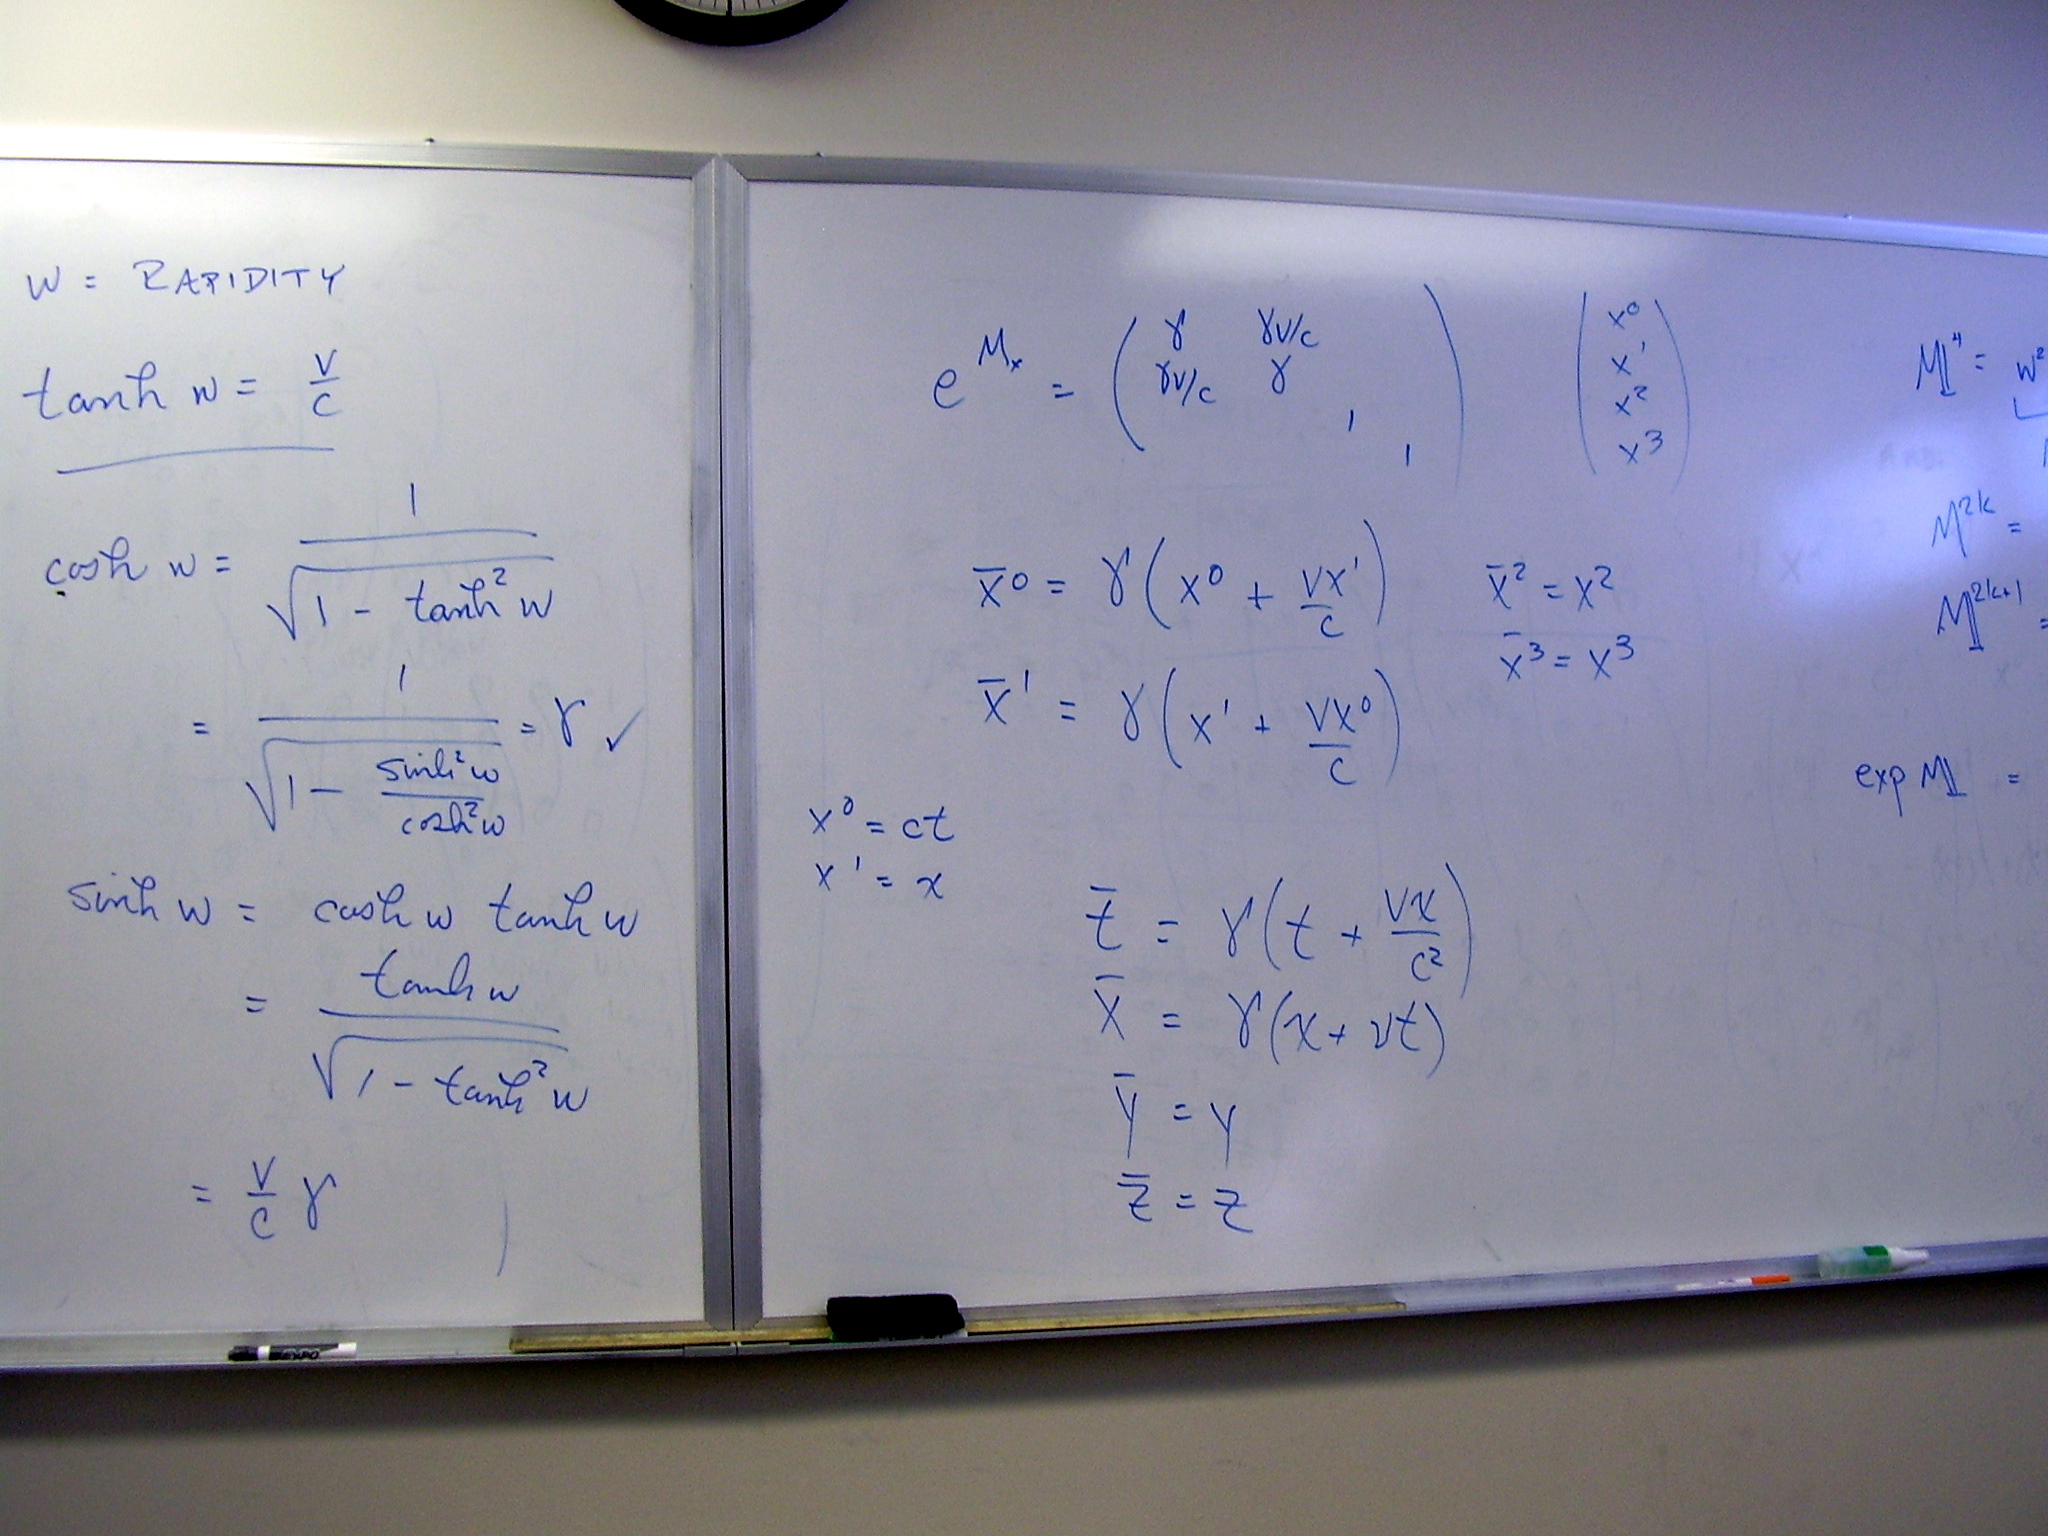 W = RAPIDITY
tanh w = v/c
cosh w = 1/√(1 - tanh² w)
= 1/√(1 - sinh² w/cosh² w) = γ ✓
sinh w = cosh w tanh w
= tanh w/√(1 - tanh² w)
= v/c γ
e^{Mₓ} = ( γ γv/c
γv/c γ
1
1 )
( x⁰
x¹
x²
x³ )
x̄⁰ = γ(x⁰ + vx¹/c)
x̄¹ = γ(x¹ + vx⁰/c)
x̄² = x²
x̄³ = x³
x⁰ = ct
x¹ = x
t̄ = γ(t + vx/c²)
x̄ = γ(x + vt)
ȳ = y
z̄ = z
M⁴ = w²
M^{2k} =
M^{2k+1} =
exp M =
EXPO